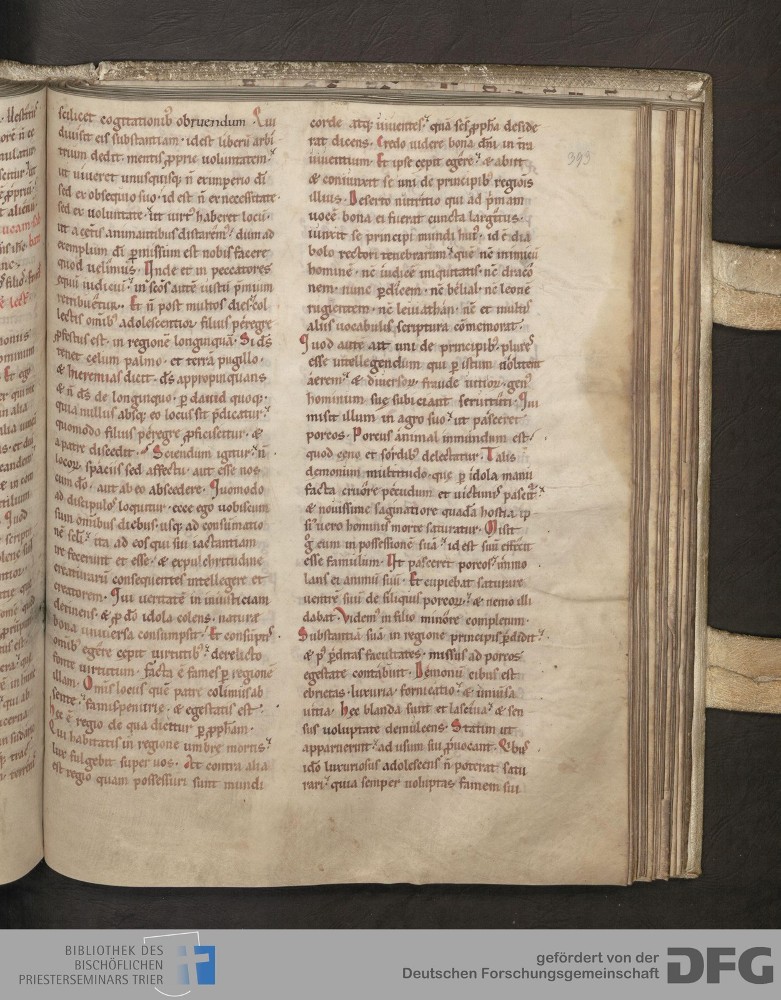 scilicet cogitationib; obruendum. Qui
diuisit eis substantiam. id est liberū arbi
trium dedit. mentis ꝓprię uoluntatem.
ut uiueret unusquisq; n̄ ex imperio dī
sed ex obsequio suo. id est n̄ ex necessitate.
sed ex uoluntate. ut uirt᷒ haberet locū.
ut a ceteris animantibus distarem᷒. dum ad
exemplum dī ꝑmissum est nobis facere
quod uelimus. Unde et in peccatores
equū iudiciū. in scōs autē iusti p̄mium
retribuetur. Et n̄ post multos dies. col
lectis omib; adolescentior filius peregre
ꝓfectus est in regionē longinquā. Si ds̄
tenet celum palmo. et terrā pugillo.
& hieremias dicit. ds̄ appropinquans
& n̄ ds̄ de longinquo. ꝑ dauid quoq;
quia nullus absq; eo locus sit p̄dicatur.
quomodo filius peregre ꝓficiscitur. &
a patre discedit. Sciendum igitur n̄
locorꝝ spaciis sed affectu. aut esse nos
cum dō. aut ab eo abscedere. Quomodo
ad discipulos loquitur. ecce ego uobiscum
sum omnibus diebus. usq; ad consūmatio
nē scłi. ita ad eos qui sui iactantiam
creaturarū consequentes intellegere et
creatorem. Qui ueritatē in iniusticiam
detinens. & ꝓ dō idola colens. naturę
bona uniuersa consumpsit. Et consūptis
omib; egere cepit uirtutib;. derelicto
fonte uirtutum. facta ē fames ꝑ regionē
illam. Omis locus quē patre colimus ab
sente. famis penurię. & egestatis est.
Hec ē regio de qua dicitur ꝑ ꝓph̄am.
Qui habitatis in regione umbre mortis.
lux fulgebit super uos. At contra alia
est regio quam possessuri sunt mundi
corde atq; uiuentes. quā scs̄ ꝓph̄a deside
rat dicens. Credo uidere bona dn̄i in tr̄a
uiuentium. Et ipse cepit egere. & abiit
& coniunxit se uni de principib; regiōis
illius. Deserto nutritio qui ad p̄mam
uocē bona ei fuerat cuncta largitus.
iunxit se principi mundi hui᷒. id ē dia
bolo rectori tenebrarum. quē nc̄ inimicū
hominē. nc̄ iudicē iniquitatis. nc̄ draco
nem. nunc ꝑdicem. nc̄ belial. nc̄ leonē
rugientem. nc̄ leuiathan. nc̄ et multis
aliis uocabulis scriptura cōmemorat.
Quod autē ait uni de principib; plures
esse intellegendum qui ꝑ istum uolitent
aerem. & diuersorꝝ fraude uitiorꝝ gen᷒
hominum sue subiciant seruituti. Qui
misit illum in agro suo. ut pasceret
porcos. Porcus animal inmundum est.
quod ceno et sordib; delectatur. Talis
demonum multitudo. que ꝑ idola manu
facta cruore pecudum et uictimis pascit᷒.
& nouissime saginatiore quadā hostia ip
si᷒ uero hominis morte saturatur. Misit
g̊ eum in possessionē suā. id est suū effecit
esse famulum. Ut pasceret porcos. immo
lans ei animū suū. Et cupiebat saturare
uentrē suū de siliquis porcorꝝ. & nemo illi
dabat. Videm᷒ in filio minore completum.
Substantiā suā in regione principis ꝑdidit.
& p᷒ ꝑditas facultates. missus ad porcos
egestate contabuit. Demonū cibus est
ebrietas. luxuria. fornicatio. & uniūsa
uitia. Hec blanda sunt et lasciua. & sen
sus uoluptate demulcens. Statim ut
apparuerint. ad usum sui ꝓuocant. Quib;
idō luxuriosus adolescens n̄ poterat satu
rari. quia semper uoluptas famem sui
393
BIBLIOTHEK DES
BISCHÖFLICHEN
PRIESTERSEMINARS TRIER
gefördert von der
Deutschen Forschungsgemeinschaft
DFG